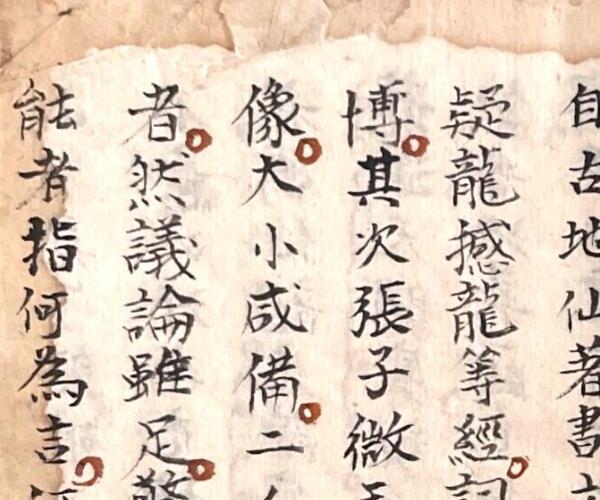 自古地仙著書
疑龍撼龍等經詞
博其次張子微玉
像大小咸備二
者然議論雖足
能者指何為吉